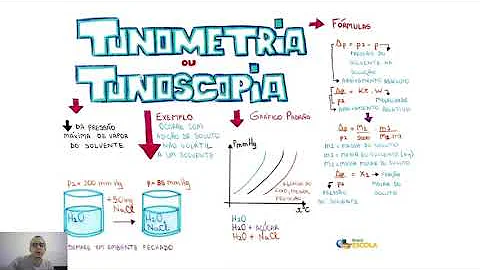 TONOMETRIA
OU
TONOSCOPIA
↓ DA PRESSÃO
MÁXIMA DE VAPOR
DO SOLVENTE
EXEMPLO
OCORRE COM
ADIÇÃO DE SOLUTO
NÃO VOLÁTIL
A UM SOLVENTE
P2 = 100 mmHg
P = 85 mmHg
+ 50 kg
NaCl
H2O
H2O
NaCl
SEMPRE EM AMBIENTE FECHADO
GRÁFICO PADRÃO
P mmHg
MENOR
PRESSÃO
x°C
H2O
H2O + AÇÚCAR
H2O + NaCl
FÓRMULAS
Δp = p2 - p
PRESSÃO
DO
SOLVENTE NA
SOLUÇÃO
ABAIXAMENTO ABSOLUTO
Δp = Kt . W
p2
MOLALIDADE
ABAIXAMENTO RELATIVO
Δp = M2 . m1
p2 1000 m2
M1 = MASSA DO SOLUTO
M1 = MASSA MOLAR DO SOLUTO
Δp = x1 → FRAÇÃO
p2
MOLAR DO
SOLUTO
P DO SOLVENTE
Brasil
ESCOLA